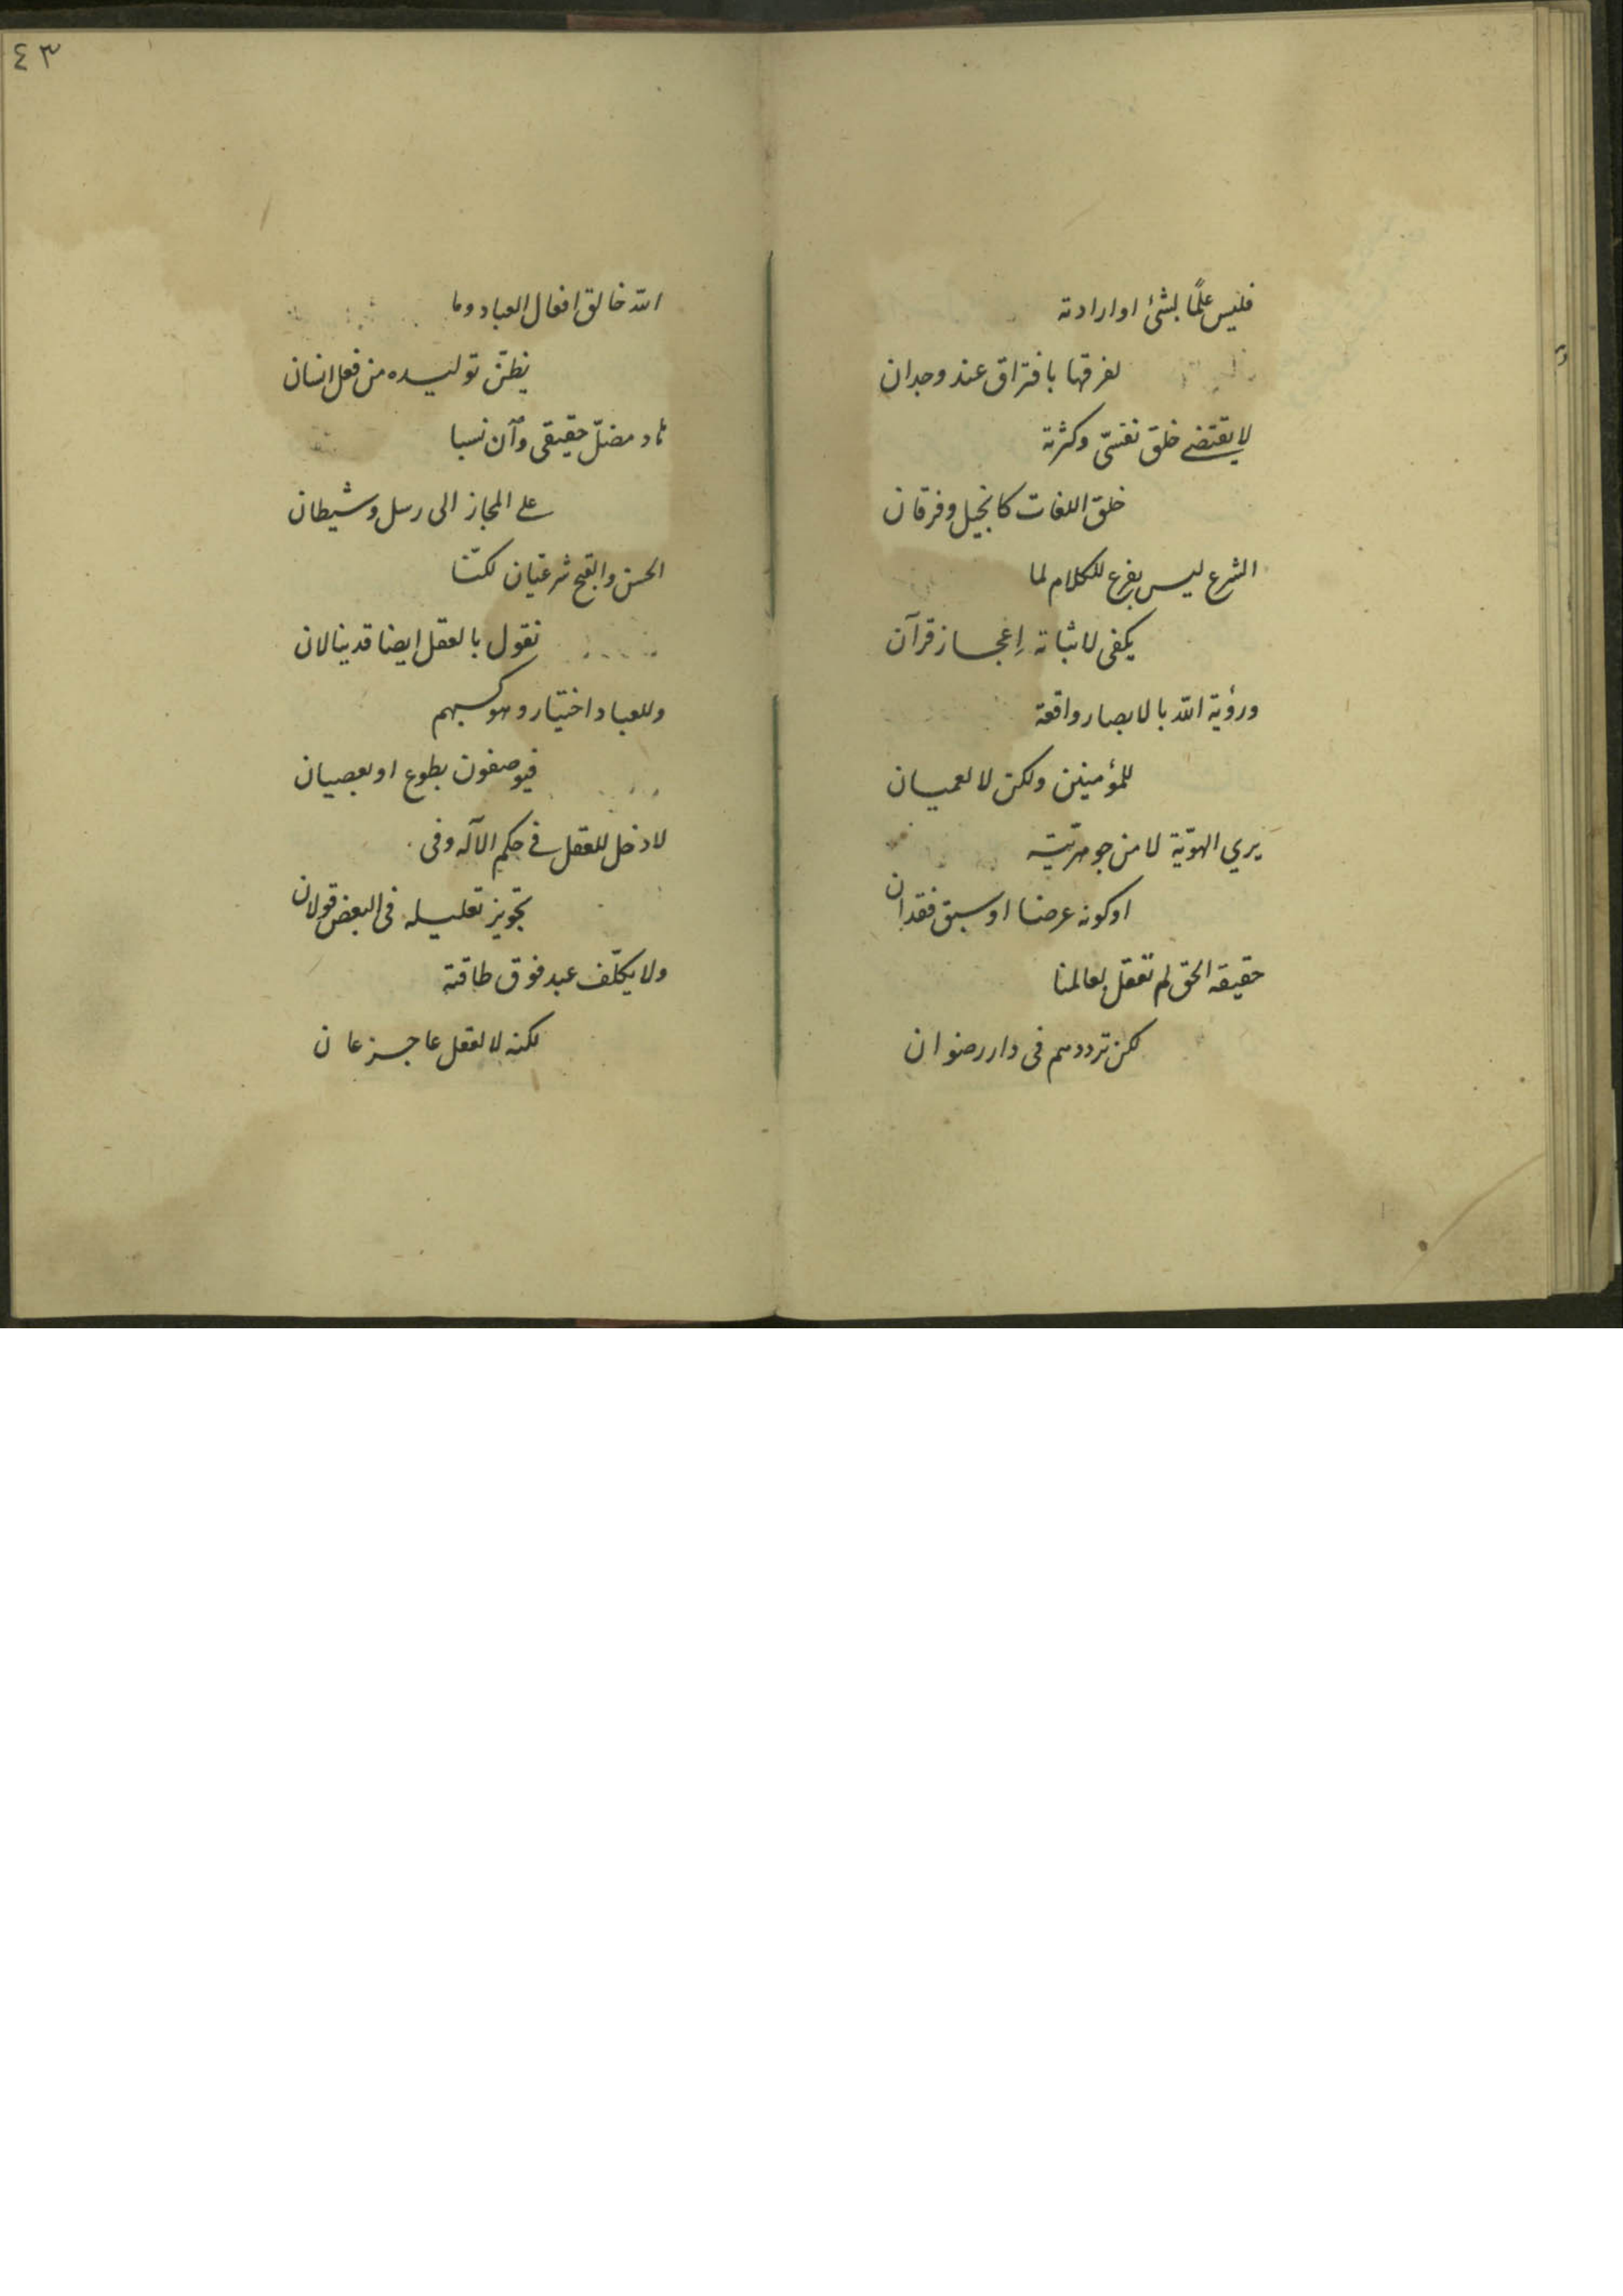 فليس علمًا بشئ او ارادته
لفرقها بافتراق عند وجدان
لا يقتضے خلق نفسىّ وكثرته
خلق اللغات كانجيل وفرقان
الشرع ليس بفرع للكلام لما
يكفى لاثباته إعجاز قرآن
ورؤية الله بالابصار واقعة
للمؤمنين ولكن لا لعميان
يرى الهويّة لا من جوهريّته
او كونه عرضا او سبق فقدان
حقيقة الحق لم تعقل بعالمنا
لكن ترددهم فى دار رضوان
٤٣
الله خالق افعال العباد وما
يظنّ توليده من فعل انسان
هاد مضلّ حقيقى وان نسبا
علے المجاز الى رسل وشيطان
الحسن والقبح شرعيّان لكنّنا
نقول بالعقل ايضا قد ينالان
وللعباد اختيار وهو كسبهم
فيوصفون بطوع او بعصيان
لا دخل للعقل فے حكم الآله وفى
تجويز تعليله فى البعض قولان
ولا يكلّف عبد فوق طاقته
لكنه لا لعقل عاجز عان